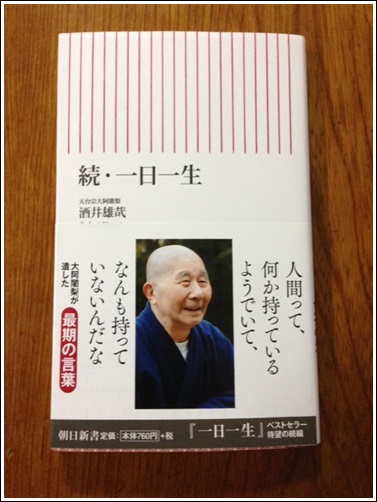 続・一日一生
天台宗大阿闍梨
酒井雄哉
人間って、
何か持っている
ようでいて、
なんも持って
いないんだな
大阿闍梨が
遺した
最期の言葉
朝日新書 定価:本体760円+税
『一日一生』
ベストセラー
待望の続編